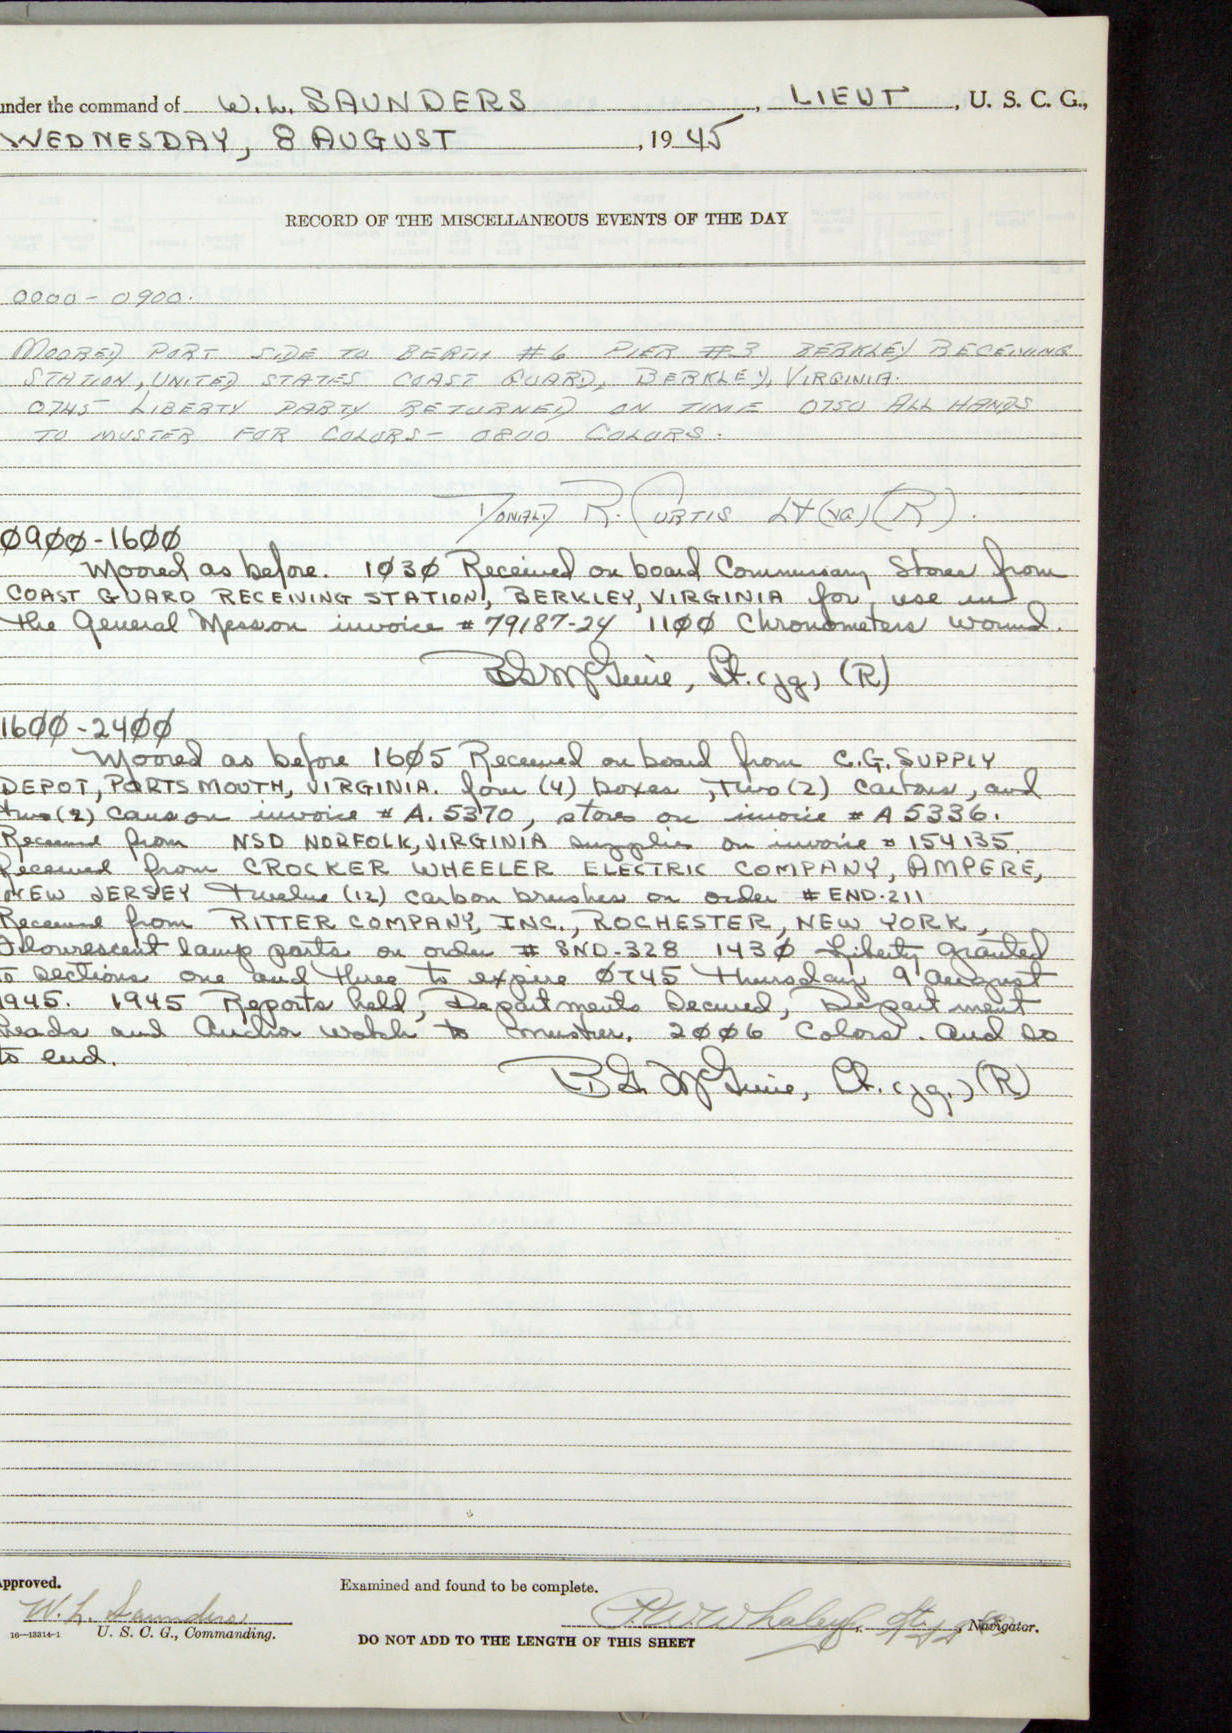 under the command of W. L. SAUNDERS, LIEUT, U. S. C. G.,
WEDNESDAY, 8 AUGUST, 1945
RECORD OF THE MISCELLANEOUS EVENTS OF THE DAY
0000 - 0900.
MOORED PORT SIDE TO BERTH #6 PIER #3 BERKLEY RECEIVING
STATION, UNITED STATES COAST GUARD, BERKLEY, VIRGINIA.
0745 LIBERTY PARTY RETURNED ON TIME 0750 ALL HANDS
TO MUSTER FOR COLORS - 0800 COLORS.
DONALD R. CURTIS Lt (R).
0900-1600
Moored as before. 1030 Received on board Commissary Stores from
COAST GUARD RECEIVING STATION, BERKLEY, VIRGINIA for use in
the General Mess on invoice # 79187-24 1100 Chronometers wound.
B G McGuire, Lt. (jg) (R)
1600-2400
Moored as before 1605 Received on board from C.G. SUPPLY
DEPOT, PORTSMOUTH, VIRGINIA. four (4) boxes, two (2) cartons, and
two (2) cans on invoice # A. 5370, stores on invoice # A 5336.
Received from NSD NORFOLK, VIRGINIA supplies on invoice # 154135.
Received from CROCKER WHEELER ELECTRIC COMPANY, AMPERE,
NEW JERSEY twelve (12) carbon brushes on order # END-211
Received from RITTER COMPANY, INC., ROCHESTER, NEW YORK,
Flourescent lamp parts on order # SND-328 1430 Liberty granted
to sections one and three to expire 0745 Thursday 9 August
1945. 1945 Reports held, Departments Secured, Department
heads and Anchor watch to muster. 2006 Colors. And so
to end.
B G. McGuire, Lt. (jg.) (R)
Approved.
W. L. Saunders
16-13314-1 U. S. C. G., Commanding.
Examined and found to be complete.
Navigator.
DO NOT ADD TO THE LENGTH OF THIS SHEET